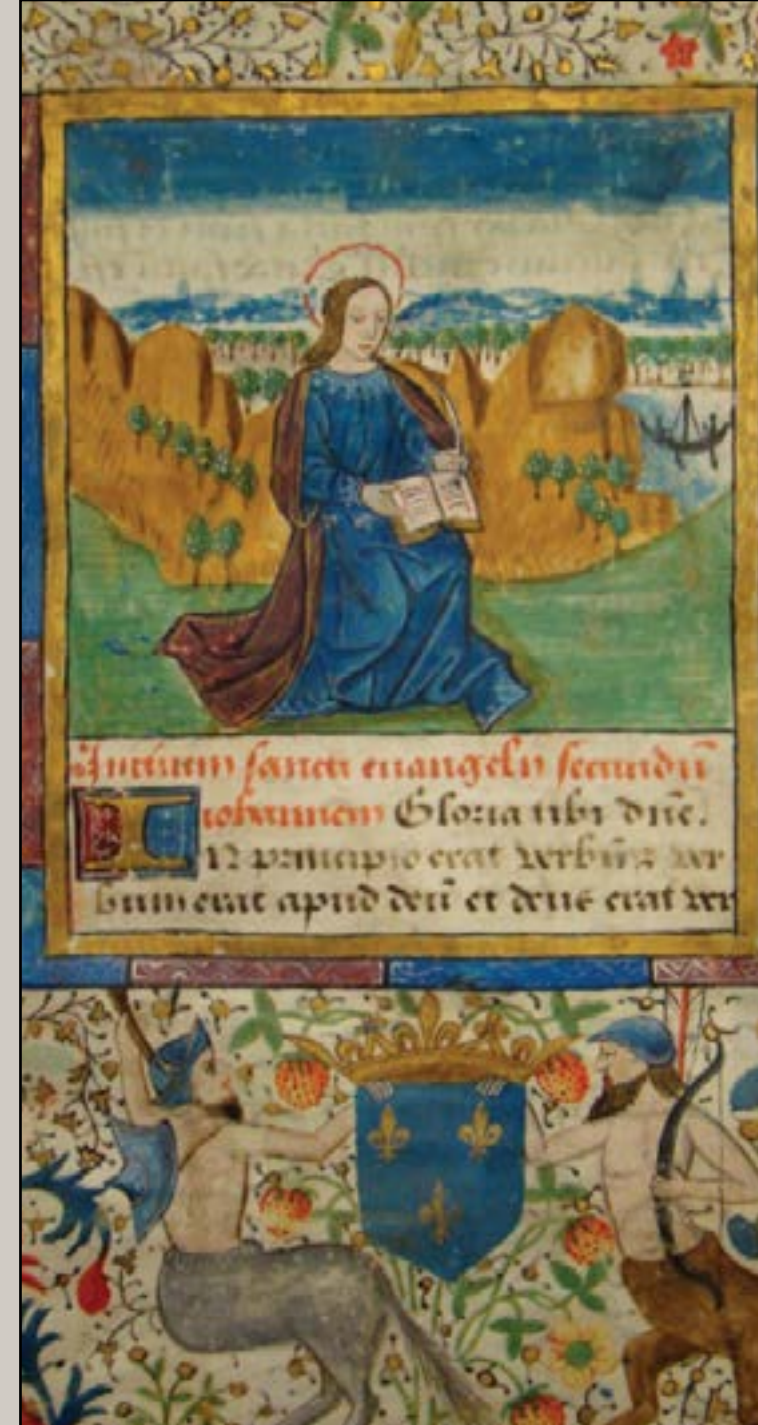 Inicium sancti euangelij secundū
iohannem Gloria tibi dn̄e.
IN principio erat verbū⁊ ver
bum erat apud deū et deus erat ver